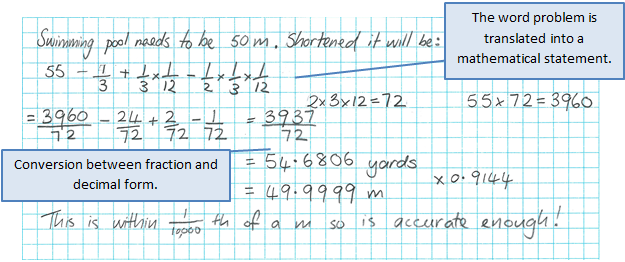 Swimming pool needs to be 50m. Shortened it will be:
The word problem is
translated into a
mathematical statement.
55 - 1/3 + 1/3 × 1/12 - 1/2 × 1/3 × 1/12
2×3×12=72
55×72=3960
= 3960/72 - 24/72 + 2/72 - 1/72 = 3937/72
Conversion between fraction and
decimal form.
= 54.6806 yards
× 0.9144
= 49.9999 m
This is within 1/10,000 th of a m so is accurate enough!